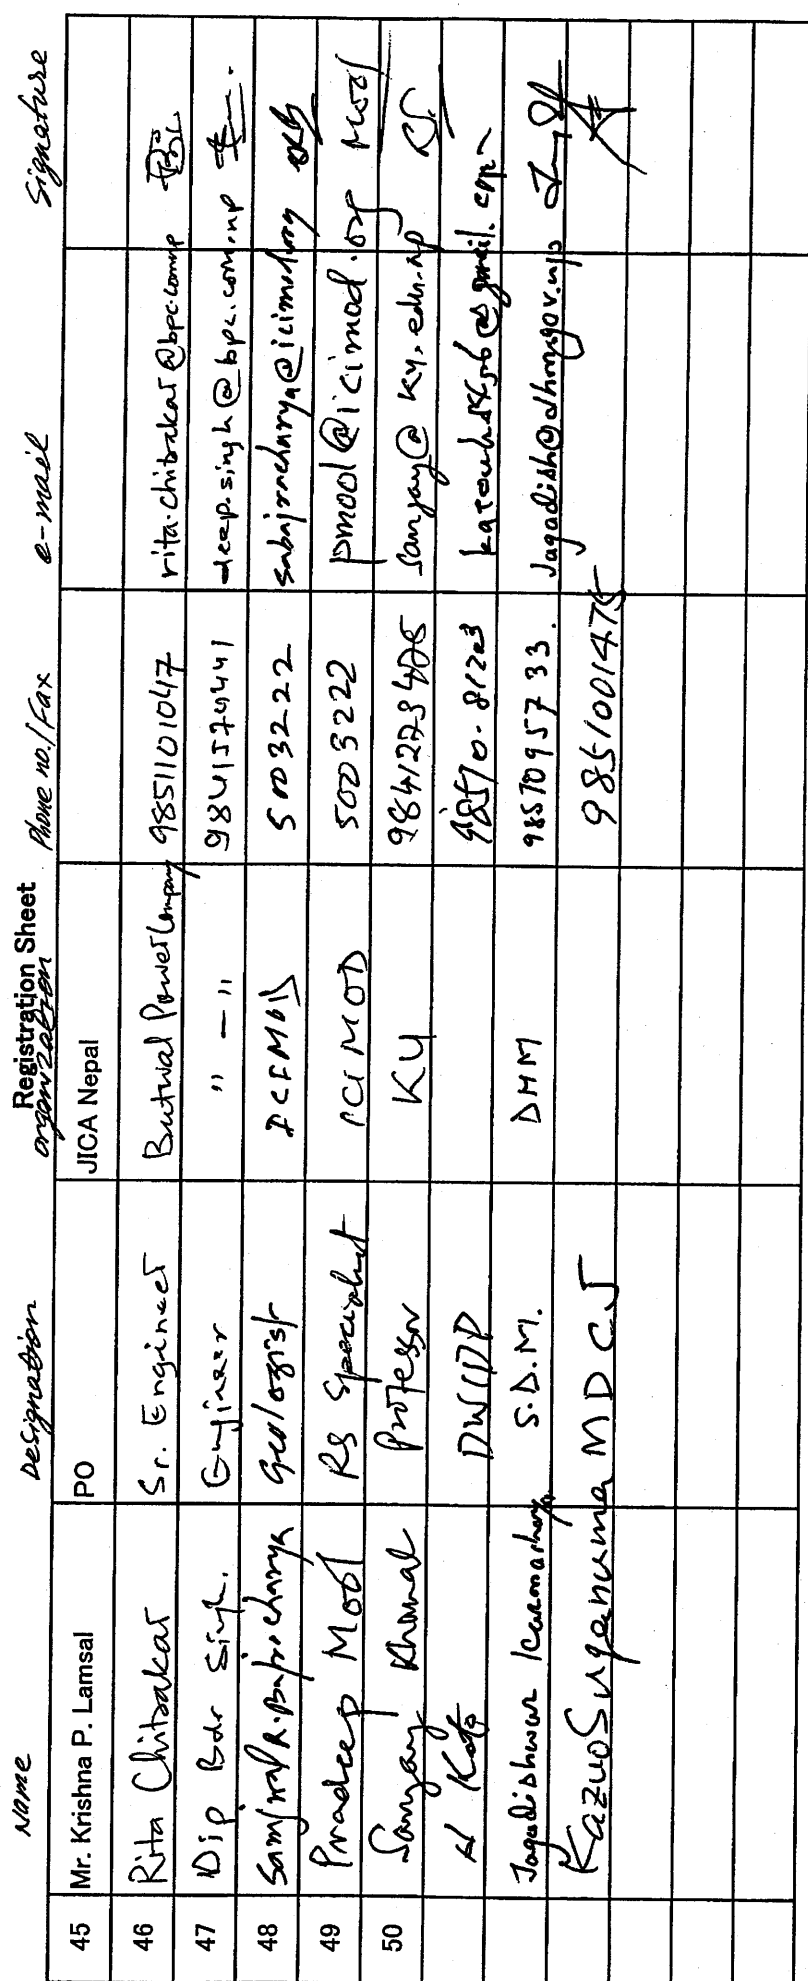 Registration Sheet
Name Designation organization Phone no./Fax e-mail Signature
45 Mr. Krishna P. Lamsal PO JICA Nepal
46 Rita Chitrakar Sr. Engineer Butwal Power Company 9851101047 rita.chitrakar@bpc.com.np
47 Dip Bdr Singh. Engineer " - " 9841574441 deep.singh@bpc.com.np
48 Samjwal R. Bajracharya Geologist ICIMOD 5003222 sabajracharya@icimod.org
49 Pradeep Mool RS Specialist ICIMOD 5003222 pmool@icimod.org Mool
50 Sanjay Khanal Professor KU sanjay@ku.edu.np
H Kato DWIDP 98510-81203
Jagadishwar Karmacharya S.D.M. DHM Jagadish@dhm.gov.np
Kazuo Suganuma MDCJ 9851001475